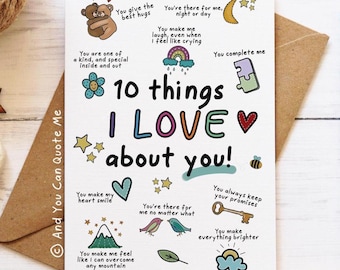 You give the
best hugs
You're there for me,
night or day
You make me
laugh, even when
I feel like crying
You are one of
a kind, and special
inside and out
You complete me
10 things
I LOVE
about you!
You make my
heart smile
You're there for me
no matter what
You always keep
your promises
You make
everything brighter
You make me feel
like I can overcome
any mountain
© And You Can Quote Me